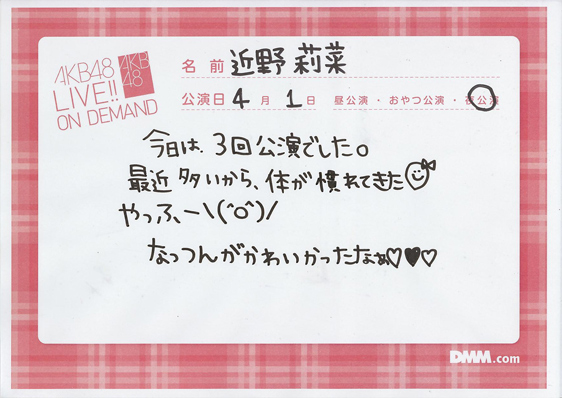 AKB48
LIVE!!
ON DEMAND
AKB
48
名 前 近野 莉菜
公演日 4 月 1 日 昼公演・おやつ公演・夜公演
今日は、3回公演でした。
最近 多いから、体が慣れてきた
やっふぃー\(^o^)/
なっつんがかわいかったなぁ♡♥♡
DMM.com